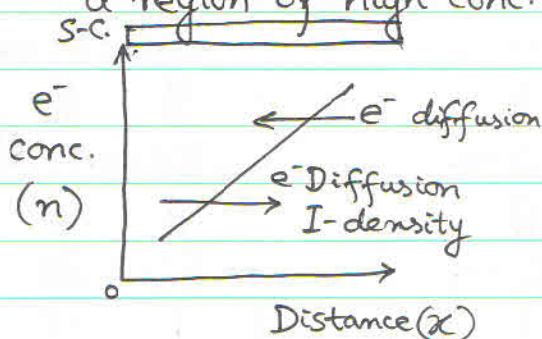 a region of high conc.
s-c.
e⁻
conc.
(n)
e⁻ diffusion
e⁻ Diffusion
I-density
0
Distance(x)